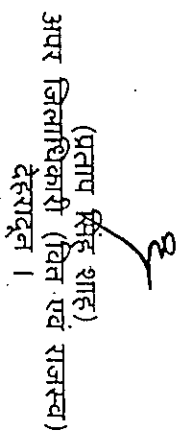 (प्रताप सिंह शाह)
अपर जिलाधिकारी (वित्त एवं राजस्व)
देहरादून ।